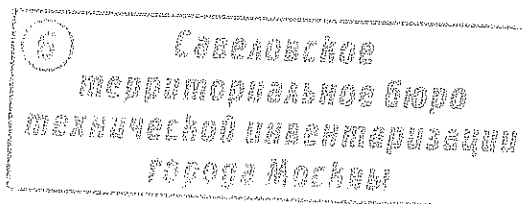 6 Савеловское
территориальное бюро
технической инвентаризации
города Москвы